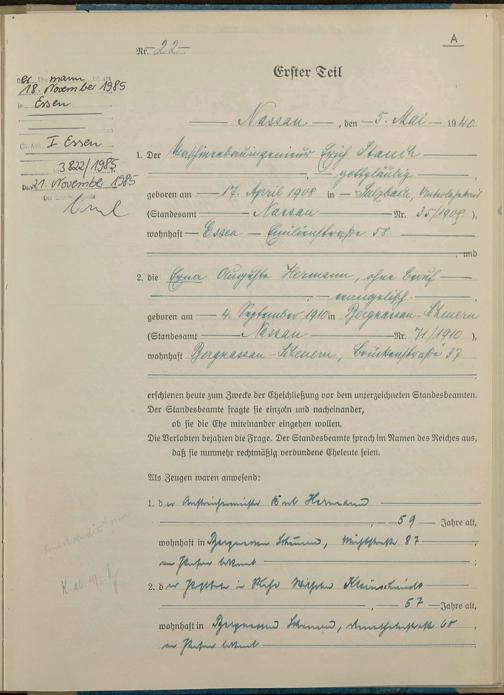 A
Nr. 22
Erster Teil
mann
18. November 1985
in Essen
I Essen
3822/1985
21. November 1985
Nassau, den 5. Mai 1940
1. Der Maschinenbauingenieur Erich Stauch
gottgläubig
geboren am 17. April 1908 in Sulzbach, Unterlahnkreis
(Standesamt Nassau Nr. 35/1908)
wohnhaft Essen Emilienstraße 58
und
2. die Erna Auguste Hermann, ohne Beruf
evangelisch
geboren am 4. September 1910 in Bergnassau-Scheuern
(Standesamt Nassau Nr. 71/1910)
wohnhaft Bergnassau-Scheuern, Brückenstraße 87
erschienen heute zum Zwecke der Eheschließung vor dem unterzeichneten Standesbeamten.
Der Standesbeamte fragte sie einzeln und nacheinander,
ob sie die Ehe miteinander eingehen wollen.
Die Verlobten bejahten die Frage. Der Standesbeamte sprach im Namen des Reiches aus,
daß sie nunmehr rechtmäßig verbundene Eheleute seien.
Als Zeugen waren anwesend:
1. der Anstreichermeister Karl Hermann
59 Jahre alt,
wohnhaft in Bergnassau Scheuern, 87
von Person bekannt
2. der Wilhelm Kleinschmidt
57 Jahre alt,
wohnhaft in Bergnassau Scheuern, 60
von Person bekannt